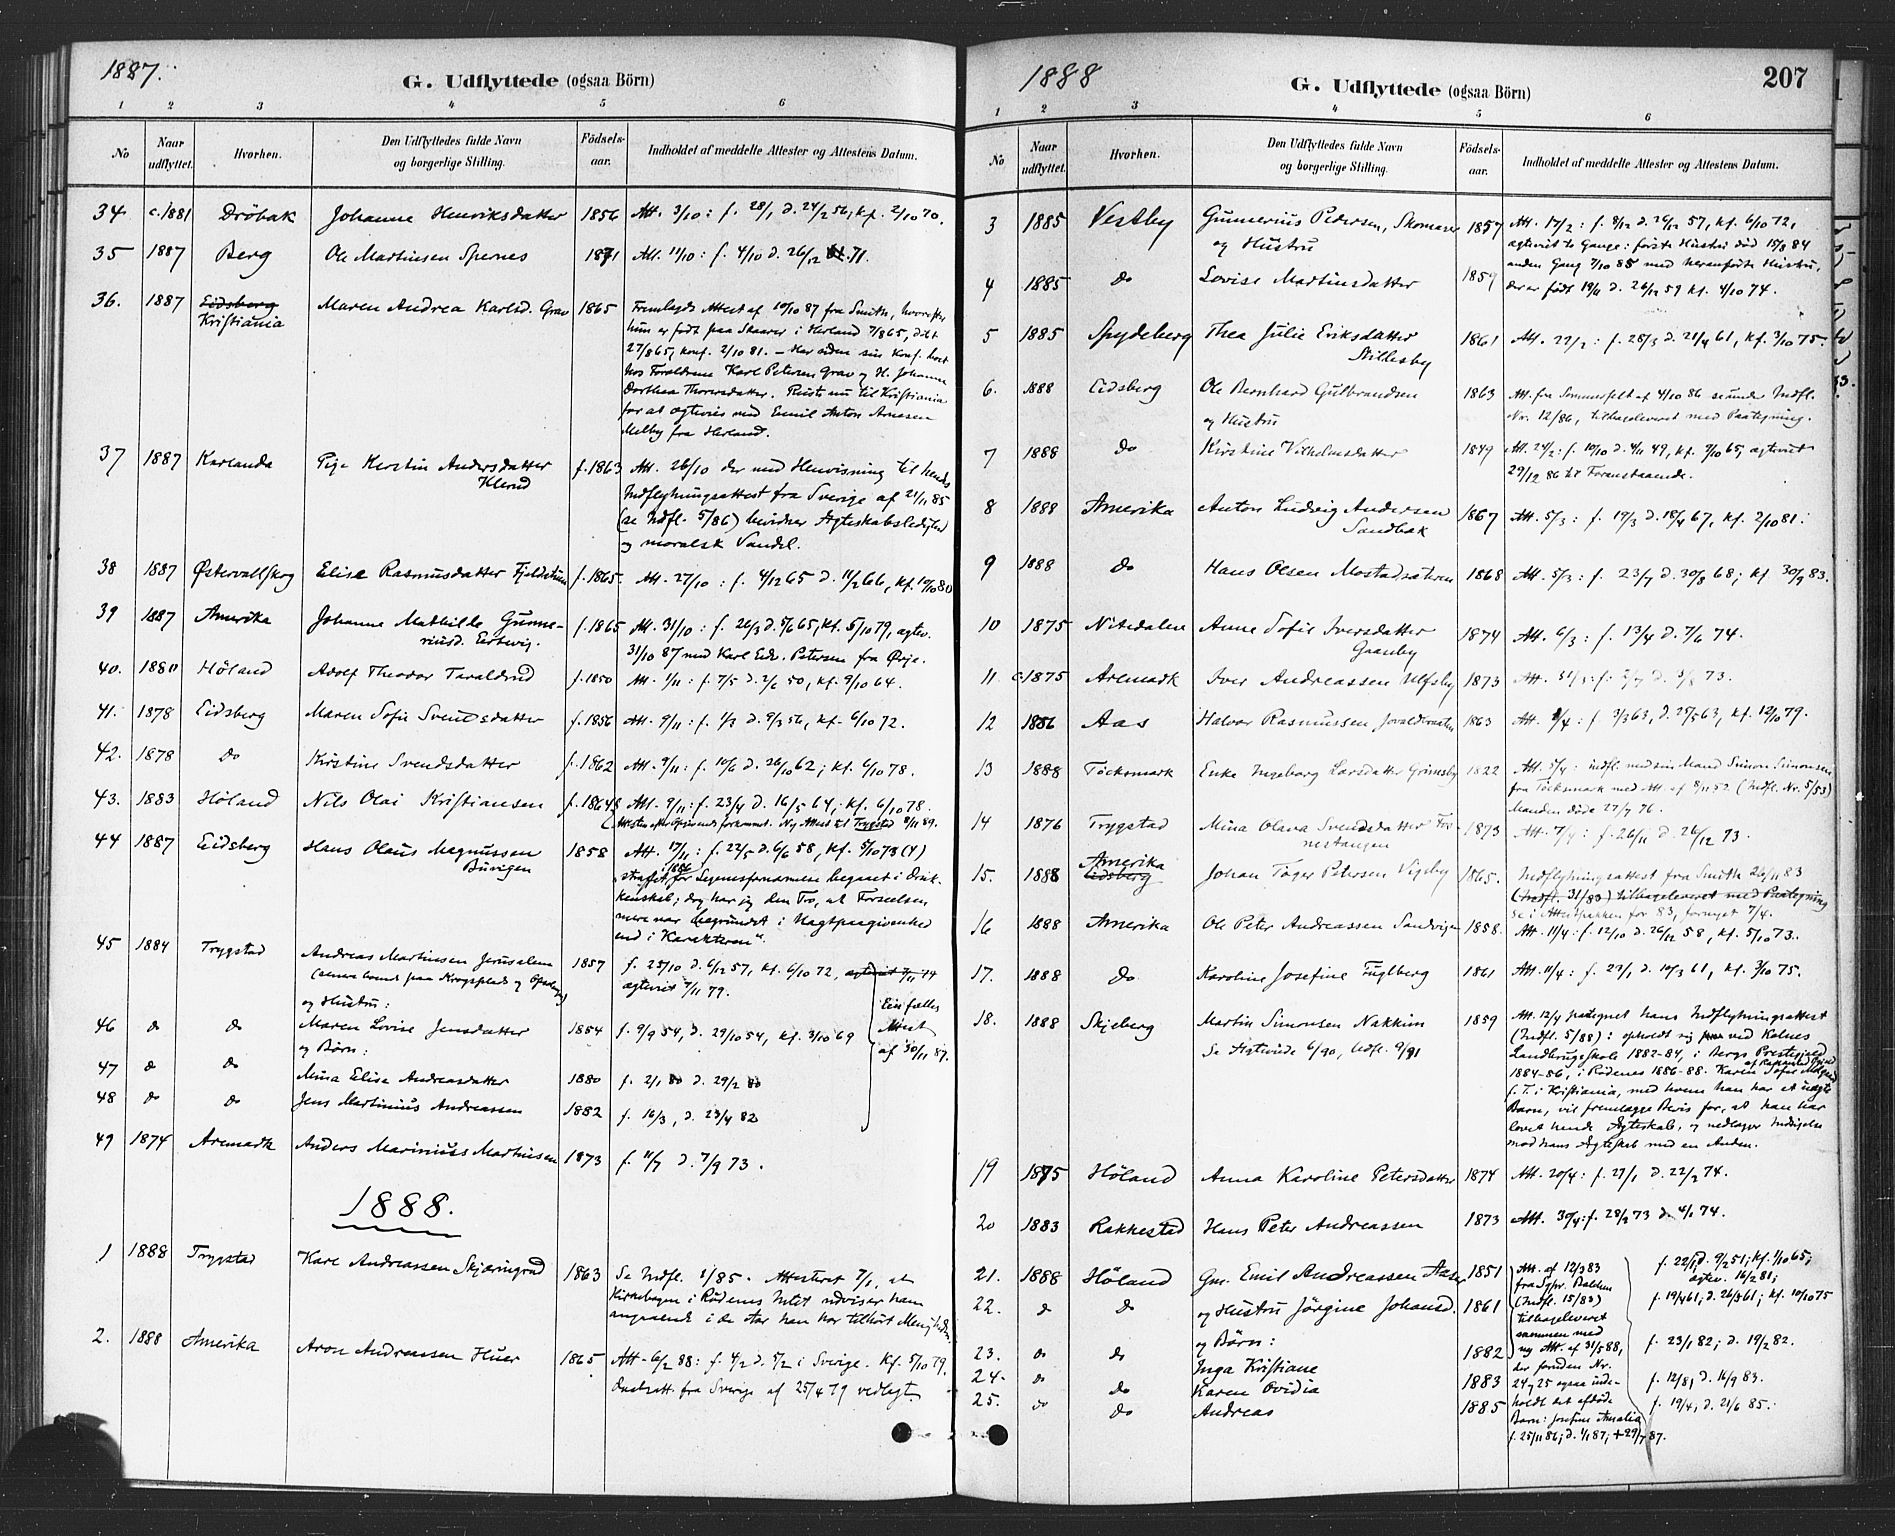 1887.
G. Udflyttede (ogsaa Börn)
1 2 3 4 5 6
No
Naar udflyttet.
Hvorhen.
Den Udflyttedes fulde Navn og borgerlige Stilling.
Födsels-aar.
Indholdet af meddelte Attester og Attestens Datum.
34. c.1881 Dröbak Johanne Henriksdatter 1856 Att. 3/10: f. 28/1 d. 24/2 56, kf. 2/10 70.
35 1887 Berg Ole Martinsen Spernes 1871 Att. 11/10: f. 4/10 d. 26/12 71.
36. 1887 Eidsberg Kristiania Maren Andrea Karlsd. Grav 1865 Fremlagde Attest af 10/10 87 fra Smith, hvorefter
hun er født paa Skaarer i Herland 7/8 65, döbt
27/8 65, konf. 2/10 81. – Har siden sin Konf. boet
hos Forældrene Karl Petersen Grav og H. Johanne
Dorthea Thorersdatter. Reiste nu til Kristiania
for at ægtevies med Emil Anton Arnesen
Melby fra Herland.
37 1887 Karlanda Pige Kerstin Andersdatter f. 1863 Att. 26/10 der med Henvisning til hendes
Klerud
Indflytningsattest fra Sverige af 21/11 85
(se Indfl. 5/86) bevidner Ægteskabsledighed
og moralsk Vandel.
38 1887 Østervallskog Elise Rasmusdatter Fjeldstuen f. 1865. Att. 27/10: f. 4/12 65 d. 11/2 66, kf. 10/10 80
39 1887 Amerika Johanne Mathilde Gunne- f. 1865 Att. 31/10: f. 26/3 d. 5/6 65, kf. 5/10 79, ægtev.
riusd.
31/10 87 med Karl Edv. Petersen fra Ørje.
40. 1880 Høland Adolf Theodor Taraldrud f. 1850 Att. 1/11: f. 7/5 d. 2/6 50, kf. 9/10 64.
41. 1878 Eidsberg Maren Sofie Svendsdatter f. 1856 Att. 9/11: f. 1/2 d. 9/3 56, kf. 6/10 72.
42. 1878 Do Kirstine Svendsdatter f. 1862 Att. 9/11: f. 10/6 d. 26/10 62; kf. 6/10 78.
43. 1883 Høland Nils Olai Kristiansen f. 1864 Att. 9/11: f. 23/4 d. 16/5 64, kf. 6/10 78.
Ny Attest til Trygstad 8/11 89.
44 1887 Eidsberg Hans Olaus Magnussen 1858 Att. 17/11: f. 22/5 d. 6/6 58, kf. 5/10 73 (4)
Buvigen
straffet 1886 for Legemsfornærmelse begaaet i Druk-
kenskab; dog har jeg den Tro, at Forseelsen
mere var begrundet i Uagtpaagivenhed
end i Karakteren".
45 1884 Trygstad Andreas Martinsen Jerusalem 1857 f. 25/10 d. 6/12 57, kf. 6/10 72,
(senere boende paa Krogsplads
ægteviet 7/11 79.
og Hustru:
46 do do Maren Lovise Jensdatter 1854 f. 9/9 54, d. 29/10 54, kf. 3/10 69
Een fælles
Attest
af 30/11 87.
og Børn:
47 do do Mina Elise Andreasdatter 1880 f. 2/1 80 d. 29/2 80
48 do do Jens Martinius Andreassen 1882 f. 16/3, d. 23/4 82
49 1874 Aremark Anders Marinius Martinsen 1873 f. 11/7 d. 7/9 73.
1888.
1 1888 Trygstad Karl Andreassen Skjæringrud 1863 Se Indfl. 1/85. Attesteret 7/1, at
Kirkebogen i Rødenes Intet udviser ham
angaaende i de Aar han har tilhørt Menigheden.
2. 1888 Amerika Aron Andreassen Huer 1865 Att. 6/2 88: f. 4/2 d. 5/2 i Sverige. Kf. 5/10 79.
Daabsatt. fra Sverige af 25/4 79 vedlagt.
1888
G. Udflyttede (ogsaa Börn)
207
1 2 3 4 5 6
No
Naar udflyttet.
Hvorhen.
Den Udflyttedes fulde Navn og borgerlige Stilling.
Födsels-aar.
Indholdet af meddelte Attester og Attestens Datum.
3 1885 Vestby Gunnerius Pedersen, Skomager 1857 Att. 17/2: f. 8/12 d. 26/12 57, kf. 6/10 72,
og Hustru
ægteviet to Gange: første Hustru død 15/8 84
anden Gang 7/10 85 med heranførte Hustru,
4 1885 Do Lovise Martinsdatter 1859 der er født 19/11 d. 26/12 59 kf. 4/10 74.
5 1885 Spydeberg Thea Julie Eriksdatter 1861 Att. 22/2: f. 28/3 d. 21/4 61, kf. 3/10 75.
Stillesby
6. 1888 Eidsberg Ole Bernhard Gulbrandsen 1863 Att. fra Sommerfelt af 4/10 86 se unde Indfl.
og Hustru
Nr. 12/86, tilbageleveret med Paategning.
7 1888 Do Kirstine Vilhelmsdatter 1849 Att. 24/2: f. 10/10 d. 4/11 49, kf. 7/10 65, ægteviet
29/12 86 til Foranstaaende.
8 1888 Amerika Anton Ludvig Andersen 1867 Att. 5/3: f. 19/3 d. 18/4 67, kf. 2/10 81.
Sandbæk
9 1888 Do Hans Olsen Mostadsæteren 1868 Att. 5/3: f. 23/7 d. 30/8 68; kf. 30/9 83.
10 1875 Nitedalen Anne Sofie Iversdatter 1874 Att. 6/3: f. 13/4 d. 7/6 74.
Graaby
11 c.1875 Aremark Iver Andreassen Ulfsby 1873 Att. 31/3: d. 3/8 73.
12 1886 Aas Halvor Rasmussen 1863 Att. 4/4: f. 3/3 63, d. 25/5 63, kf. 12/10 79.
13 1888 Töcksmark Enke Ingeborg Larsdatter Grimsby 1822 Att. 5/4: indfl. med sin Mand Simon Simonsen
fra Töcksmark med Att. af 8/11 52 (Indfl. Nr. 5/53)
Manden døde 27/7 76.
14 1876 Trygstad Mina Olava Svendsdatter For- 1873 Att. 7/4: f. 26/11 d. 26/12 73.
nestangen
15. 1888 Amerika Eidsberg Johan Töger Petersen Vigsby 1865. Indflytningsattest fra Smith 26/11 83
(Indfl. 31/83) tilbageleveret med Paategning
se i Attestpakken for 83, fornyet 7/4.
16 1888 Amerika Ole Peter Andreassen Sandvigen 1858. Att. 11/4: f. 12/10 d. 26/12 58, kf. 5/10 73.
17. 1888 Do Karoline Josefine Fuglberg 1861 Att. 11/4: f. 22/1 d. 10/3 61, kf. 3/10 75.
18. 1888 Skjeberg Martin Simonsen Nakkim 1859 Att. 12/4 paategnet hans Indflytningsattest
Se Tilstede 6/90, Udfl. 9/91
(Indfl. 5/88): opholdt sig ved Kalnes
Landbrugsskole 1882-84, i Bergs Prestegjeld
1884-86, i Rødenes 1886-88. Karen Sofie
f. T. i Kristiania, med hvem han har et uægte
Barn, vil fremlægge Bevis for, at han har
lovet hende Ægteskab, og nedlægger Indsigelse
mod hans Ægteskab med en Anden.
19 1875 Höland Anna Karoline Petersdatter 1874 Att. 20/4: f. 27/1 d. 22/2 74.
20 1883 Rakkestad Hans Peter Andreassen 1873 Att. 30/4: f. 28/2 73 d. 4/1 74.
21. 1888 Höland Gm. Emil Andreassen 1851 Att. af 12/3 83
f. 22/1, d. 9/2 51; kf. 1/10 65;
ægtev. 16/2 81;
fra Sgpr. Balchen
22. do do og Hustru Jörgine Johansd. 1861 (Indfl. 15/83)
f. 19/4 61, d. 26/5 61; kf. 10/10 75
tilbageleveret
og Börn:
sammen med
23. do do Inga Kristiane 1882 ny Att. af 31/5 88,
f. 23/1 82; d. 19/2 82.
der foruden Nr.
24. do do Karen Ovidia 1883 24 og 25 ogsaa inde-
f. 12/8, d. 16/9 83.
25. do do Andreas 1885 holdt det afdöde
f. 19/4, d. 21/6 85.
Barn: Josefine Amalia
f. 25/11 86; d. 1/1 87; + 29/7 87.